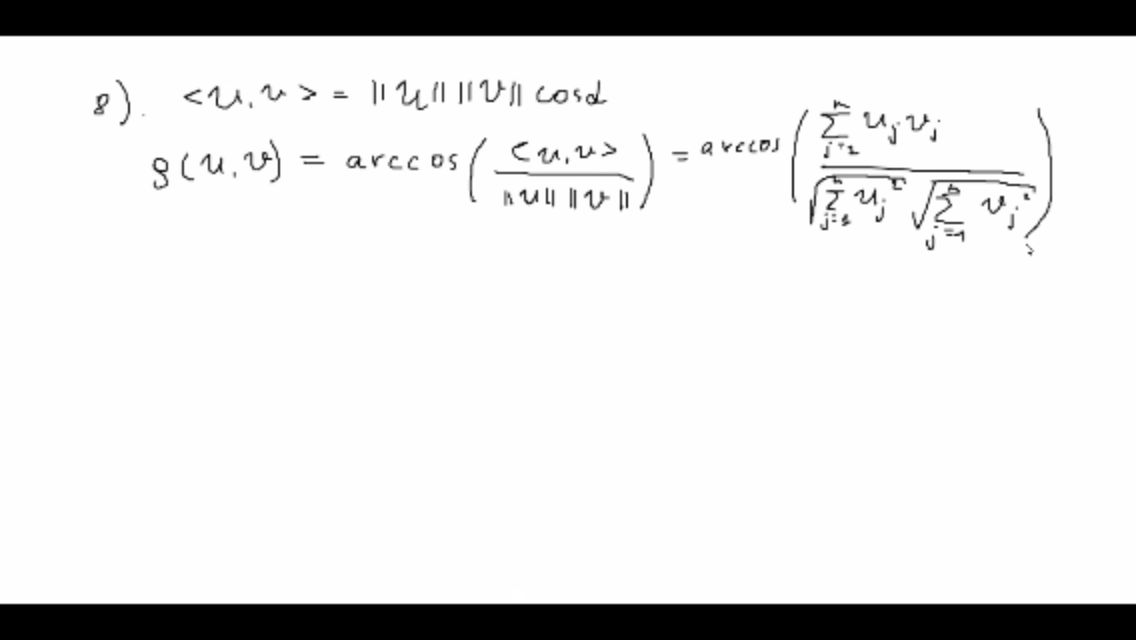 8). <u, v> = ||u|| ||v|| cosα
ρ(u, v) = arccos( <u, v> / ||u|| ||v|| ) = arccos( ∑_{j=1}^{n} u_j v_j / √(∑_{j=1}^{n} u_j²) √(∑_{j=1}^{n} v_j²) )